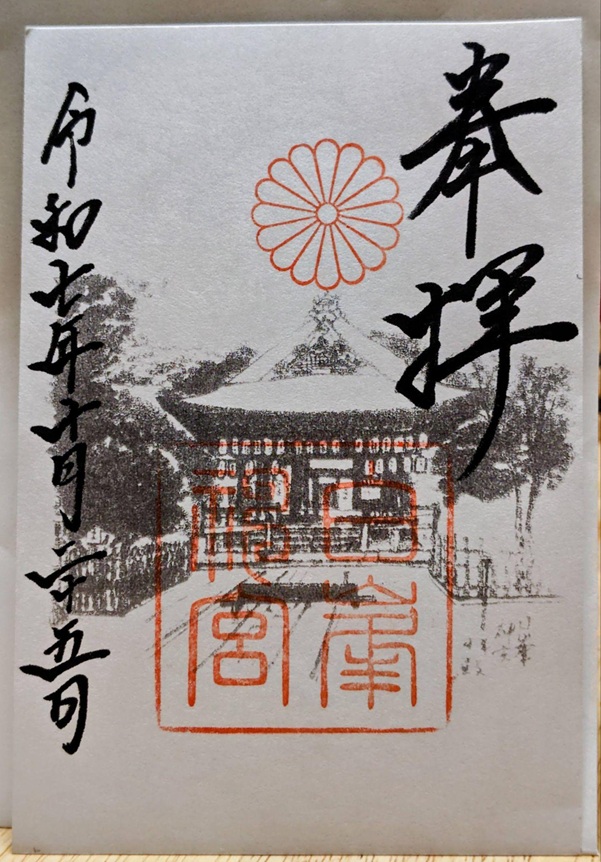 奉拝
白峯
神宮
令和七年十月二十五日